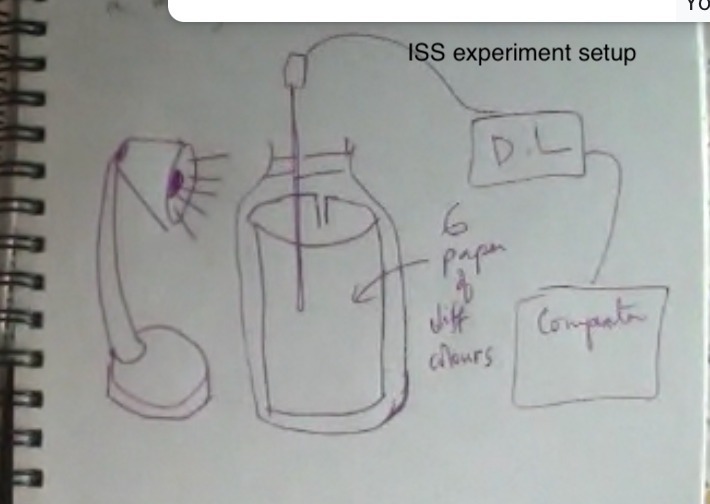 Yo
ISS experiment setup
D.L
6
paper
of
diff
colours
Computer